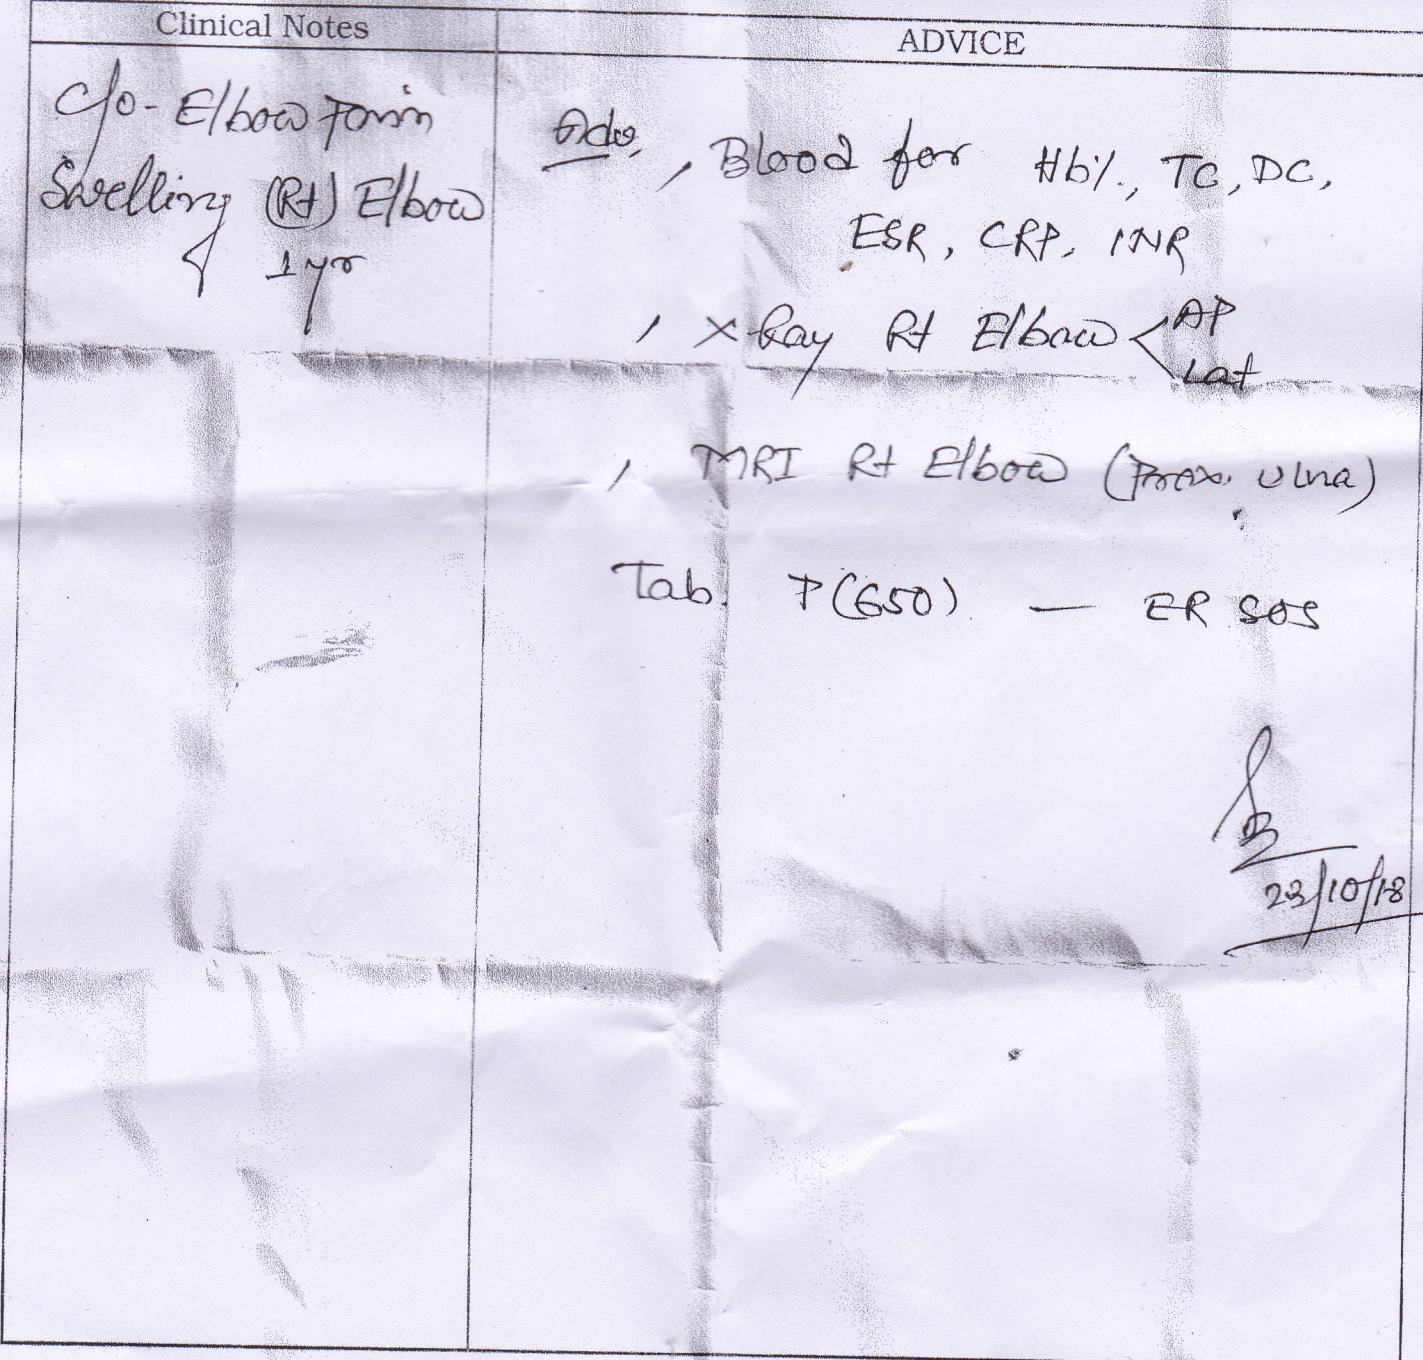 Clinical Notes
ADVICE
c/o - Elbow Pain
Swelling (Rt) Elbow
1 yr
Adv,
, Blood for Hb%, TC, DC,
ESR, CRP, INR
, X Ray Rt Elbow < AP
Lat
, MRI Rt Elbow (Prox. Ulna)
Tab. P(650) — ER SOS
23/10/18